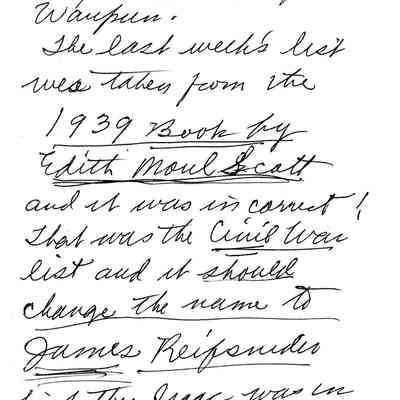 Waupun.
The last week's list
was taken from the
1939 Book by
Edith Moul Scott
and it was in correct!
That was the Civil War
list and it should
change the name to
James Reifsnider
the Isaac was in